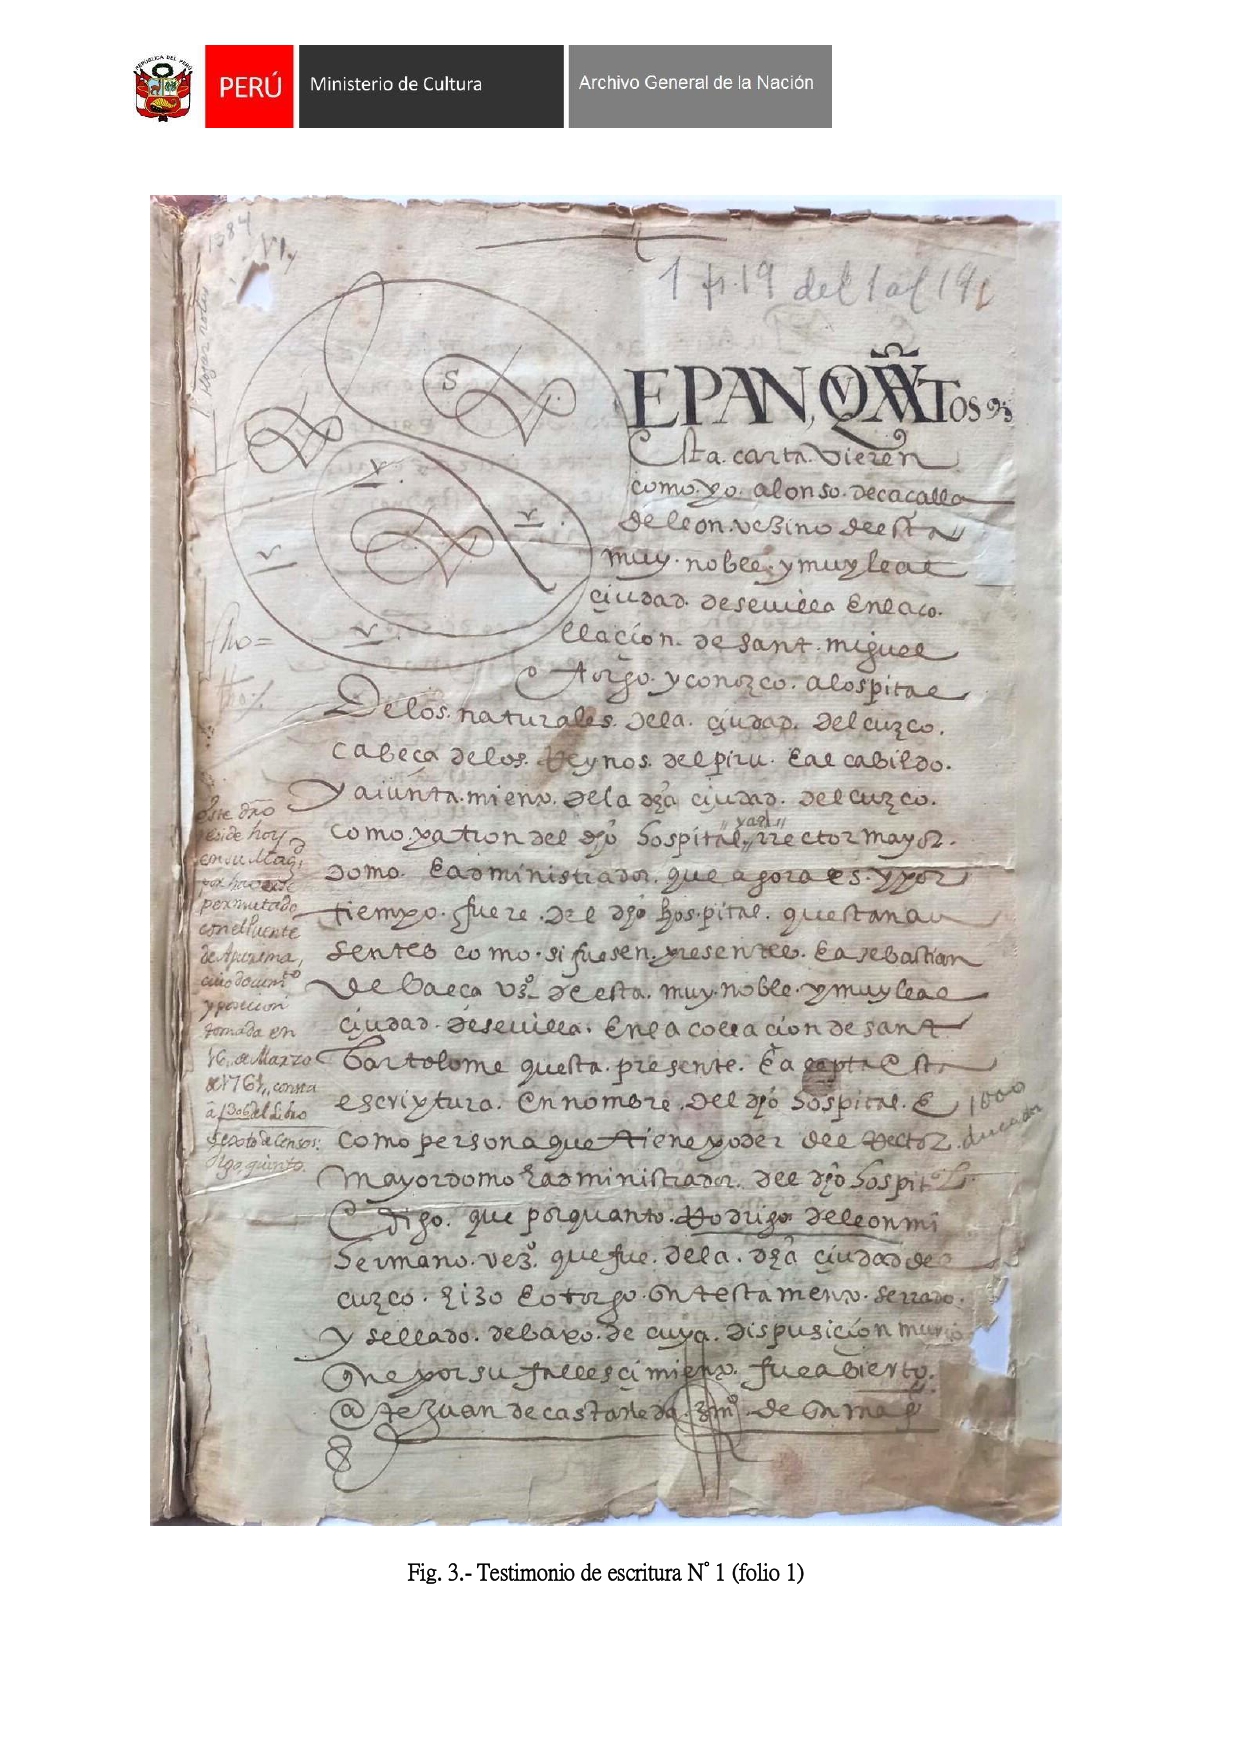 PERÚ
Ministerio de Cultura
Archivo General de la Nación
1384
1 fs. 19 del 1 al 19
S EPAN, QVANTOS
Esta. carta. vieren
como. yo. alonso. decacalla
de leon. vezino deesta
muy. noble. y muy leal
ciudad. desevilla Enlaco.
llacion. de sant. miguel
otorgo. y conozco. alospital
Delos. naturales. dela. ciudad. del cuzco.
cabeça delos. Reynos. del piru. Eal cabildo.
Y aiunta.mienº. dela dha ciudad. del cuzco.
como patron del dhº hospital, rrector mayor
domo. Eadministrador. que agora es. y por
tiempo. fuere. del dhº hospital. questan au
sentes como. si fuesen. presentes. Ea sebastian
de baeça vzº de esta. muy. noble. y muy leal
ciudad. desevilla. Enla collacion de sant
Bartolome questa. presente. Ea cepta esta
escriptura. En nombre. del dhº hospital. E
como persona que tiene poder del Rector.
Mayordomo Eadministrador. del dhº hospital
E digo. que por quanto. Rodrigo deleon mi
hermano. vezº que fue. dela. dha ciudad de
cuzco. hizo Eotorgo. un testamenº. serrado.
y sellado. debaxo. de cuya. dispusicion murio
Que por su fallescimienº. fue abierto.
Ante Juan de castañeda.
este dho
reside hoy
en su Mag.
por haverse
permutado
con el Puente
de Apurima,
cuio documtº
y posecion
tomada en
16, de Marzo
de 1761,, consta
à f306 del Libro
1000
ducados
Fig. 3.- Testimonio de escritura N° 1 (folio 1)